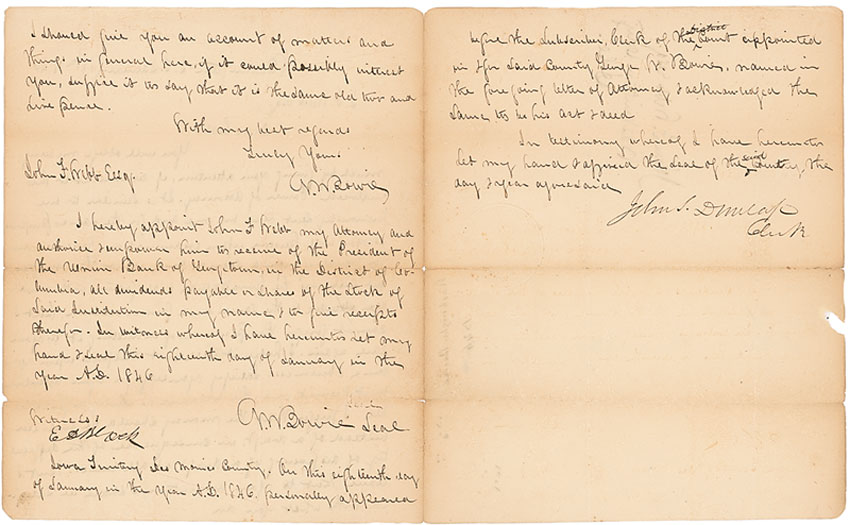 I should give you an account of matters and
things in general here, if it could possibly interest
you, suffice it to say that it is the same old two and
five pence.
With my best regards
Truly Yours
John F. Webb Esq.
G W Bowie
I hereby appoint John F Webb my Attorney and
authorise & empower him to receive of the President of
the Union Bank of Georgetown, in the District of Co-
lumbia, all dividends payable on shares of the Stock of
Said Institution in my name & to give receipts
therefor. In witness whereof I have hereunto set my
hand & seal this eighteenth day of January in the
year A.D. 1846
Witness
G W Bowie Seal
Iowa Territory Des Moines County. On this eighteenth day
of January in the year A.D. 1846. personally appeared
before the Subscriber, Clerk of the District Court appointed
in & for Said County George W. Bowie, named in
the foregoing letter of Attorney & acknowledged the
Same to be his act & deed
In testimony whereof I have hereunto
Set my hand & affixed the Seal of the said County, the
day & year aforesaid
John S. Dunlap
Clerk